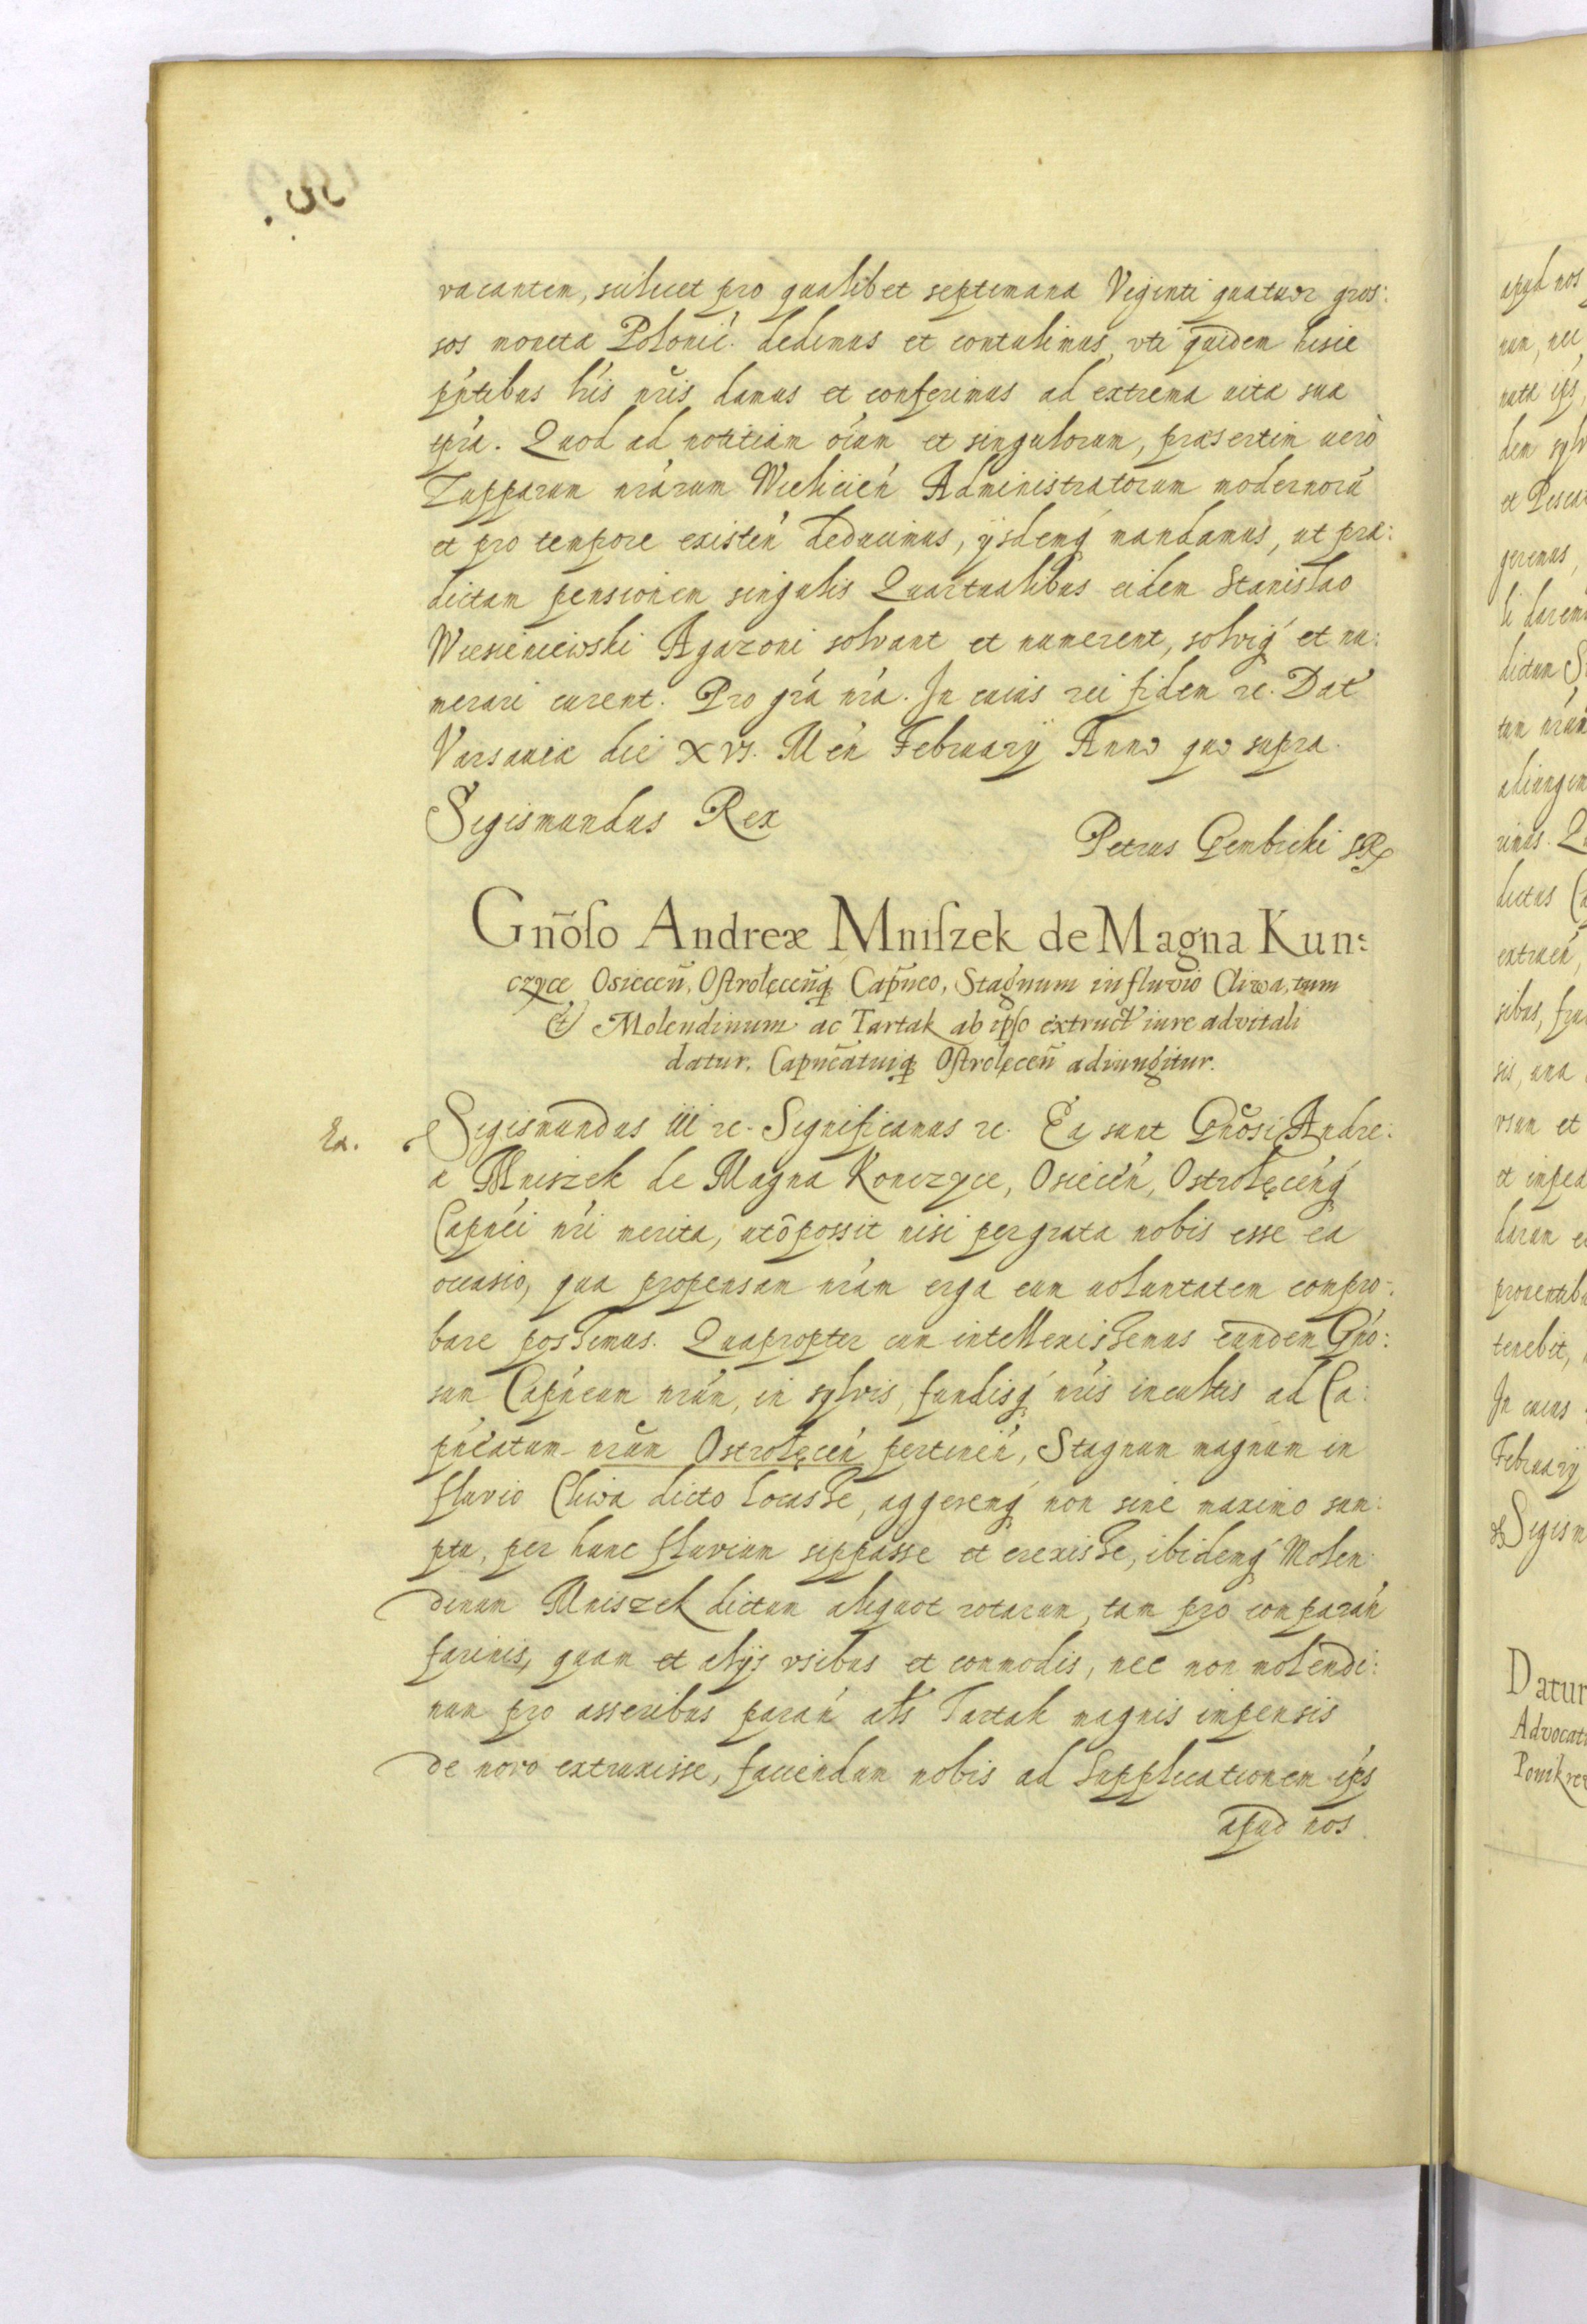 vacantem, scilicet pro qualibet septimana Viginti quatuor gros:
sos moneta Polonic̃. dedimus et contulimus, vti quidem hisce
pñtibus lris nr̃is damus et conferimus ad extrema vita sua
tp̃ra. Quod ad notitiam oĩum et singulorum, præsertim uerò
Zupparum nr̃arum Wielicień Administratorum modernorũ
et pro tempore existeñ deducimus, ijsdemq́ mandamus, ut præ:
dictam pensionem singulis Quartualibus eidem Stanislao
Wiesieniewski Agazoni solvant et numerent, solviq́ et nu:
merari curent. Pro gr̃a nr̃a. In cuius rei fidem rc. Dat̃
Varsauiæ die XVI. Meñ February Anno quo supra.
Sigismundus Rex
Petrus Gembicki SR
Gñoso Andreæ Mniszek de Magna Kun:
czyce Osiecen̄, Ostrołęcen̄q́ Cap̄neo, Stagnum in fluvio Cliwa, tum
et Molendinum ac Tartak ab ipso extruct̃ iure advitali
datur. Capnēatuiq́ Ostrołęcen̄ adiungitur.
Ex.
Sigismundus III rc. Significamus rc. Ea sunt Gñosi Andre:
a Mniszek de Magna Konczyce, Osiecień, Ostrołęceńq́
Capnēi nr̃i merita, ut õ possit nisi pergrata nobis esse ea
occasio, qua propensam nr̃am erga eum uoluntatem compro:
bare possimus. Quapropter cum intellexissemus eundem Gño:
sum Capñeum nr̃um, in sylvis, fundisq́ nr̃is incultis ad Ca:
pñeatum nr̃um Ostrołęceń pertineñ, Stagnum magnum in
fluvio Cliwa dicto locasse, aggeremq́ non sine maximo sum:
ptu, per hunc fluvium sippasse et erexisse, ibidemq́ Molen:
dinum Mniszek dictum aliquot rotarum, tam pro comparań
farinis, quam et alijs vsibus et commodis, nec non molendi:
num pro asseribus parań als Tartak magnis impensis
de novo extruxisse, faciendum nobis ad supplicationem ip̃s
apud nos